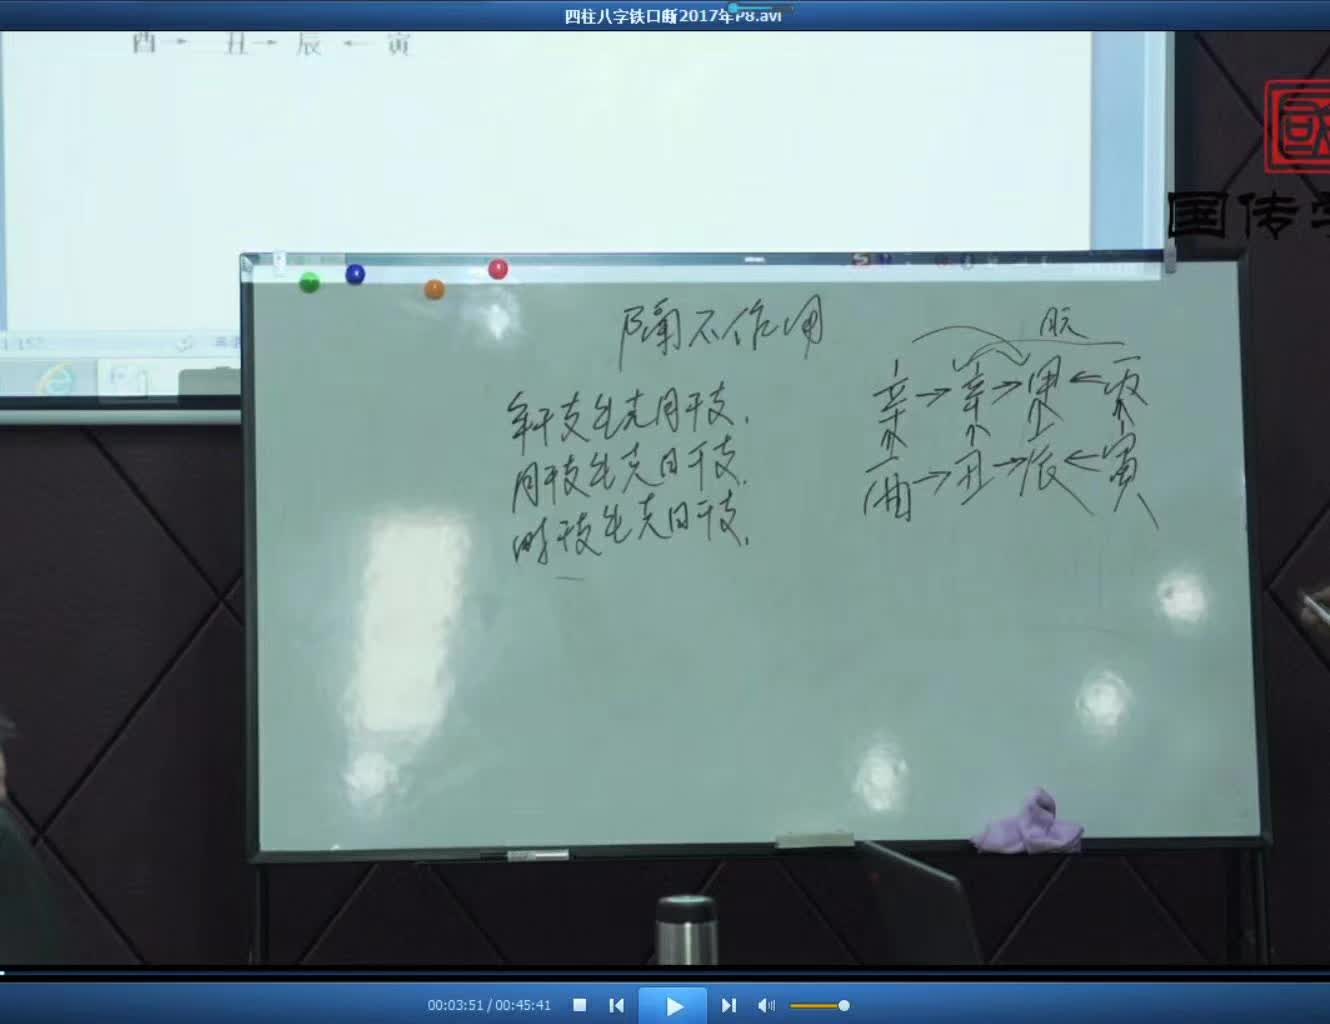 四柱八字铁口断2017年P8.avi
酉→ 丑→ 辰 ←寅
国传
隔不作用
年干支生克月干支.
月干支生克日干支.
时干支生克日干支.
辛→辛→甲←丙
酉→丑→辰←寅
00:03:51/00:45:41